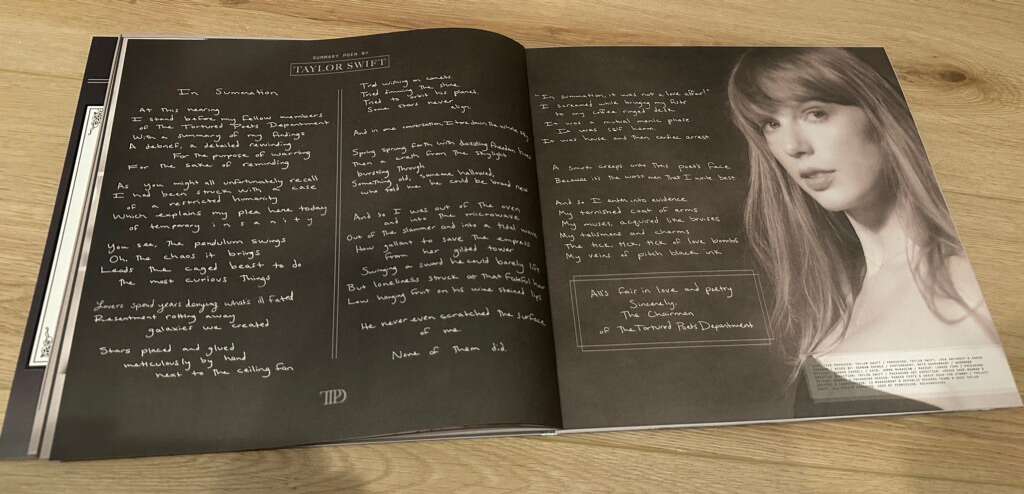 SUMMARY POEM BY
TAYLOR SWIFT
In Summation
At this hearing
I stand before my fellow members
of The Tortured Poets Department
With a summary of my findings
A debrief, a detailed rewinding
For the purpose of warning
For the sake of reminding
As you might all unfortunately recall
I had been struck with a case
of a restricted humanity
Which explains my plea here today
of temporary i n s a n i t y
You see, the pendulum swings
Oh, the chaos it brings
Leads the caged beast to do
the most curious things
Lovers spend years denying what's ill fated
Resentment rotting away
galaxies we created
Stars placed and glued
meticulously by hand
next to the ceiling fan
Tried wishing on comets.
Tried dimming the shine
Tried to orbit his planet.
Some stars never
align.
And in one conversation, I tore down the whole sky
Spring sprung forth with dazzling freedom hues
Then a crash from the skylight
bursting through
Something old, someone hallowed,
who told me he could be brand new
And so I was out of the oven
and into the microwave
Out of the slammer and into a tidal wave
How gallant to save the empress
from her gilded tower
Swinging a sword he could barely lift
But loneliness struck at that fateful hour
Low hanging fruit on his wine stained lips
He never even scratched the surface
of me
None of them did.
TTPD
"In summation, it was not a love affair!"
I screamed while bringing my fists
to my coffee ringed desk
It was a mutual manic phase
It was self harm
It was house and then cardiac arrest
A smirk creeps onto this poet's face
Because it's the worst men that I write best
And so I enter into evidence
My tarnished coat of arms
My muses, acquired like bruises
My talismans and charms
The tick, tick, tick of love bombs
My veins of pitch black ink
All's fair in love and poetry
Sincerely,
The Chairman
of The Tortured Poets Department